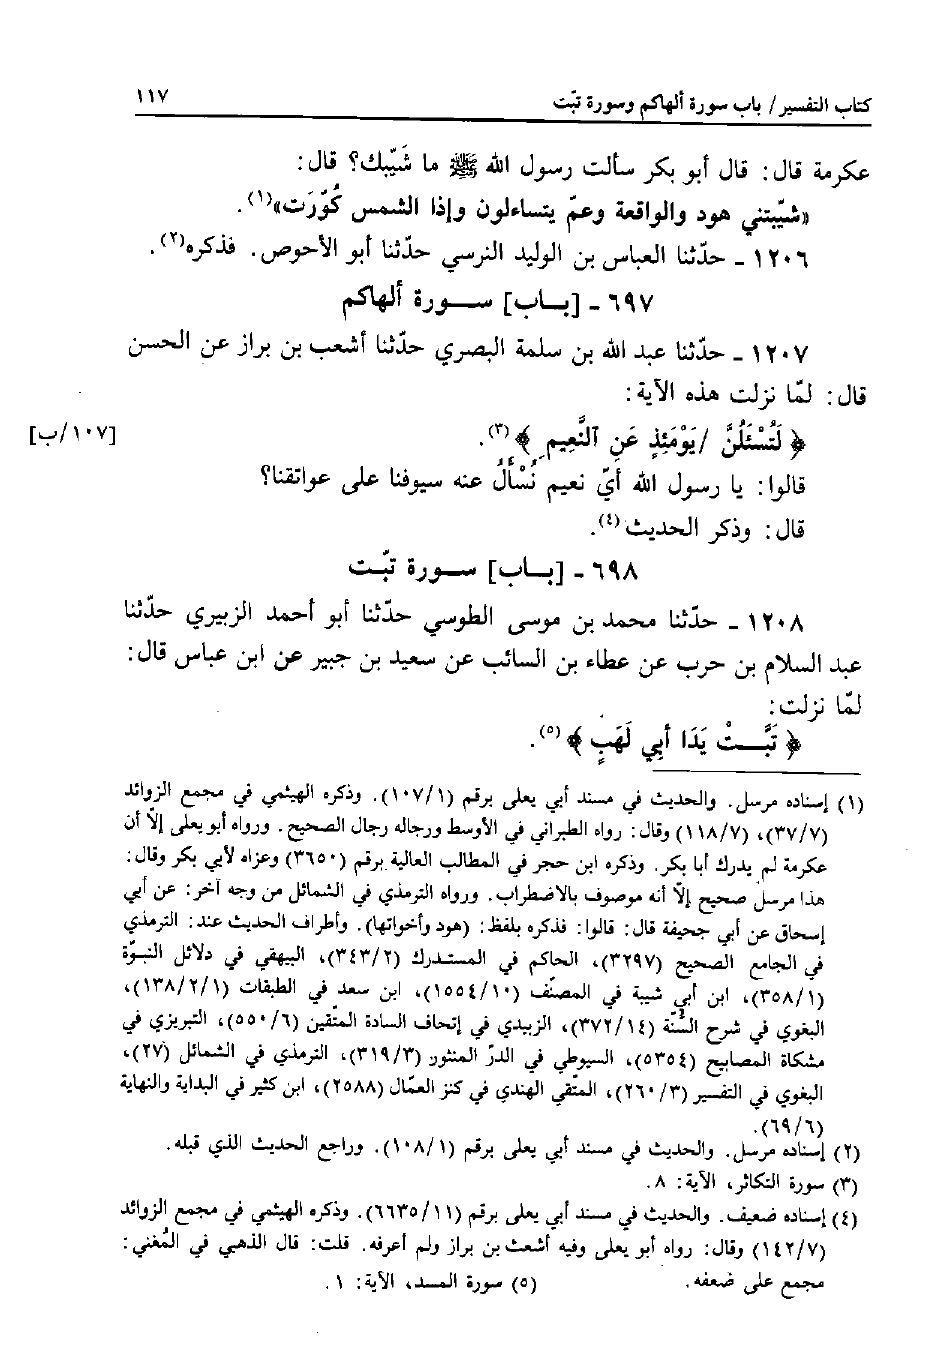 كتاب التفسير / باب سورة ألهاكم وسورة تبّت ١١٧
عكرمة قال: قال أبو بكر سألت رسول الله ﷺ ما شَيّبك؟ قال:
«شيّبتني هود والواقعة وعمّ يتساءلون وإذا الشمس كُوّرَت»(١).
١٢٠٦ ـ حدّثنا العباس بن الوليد النرسي حدّثنا أبو الأحوص. فذكره(٢).
٦٩٧ ـ [باب] سورة ألهاكم
١٢٠٧ ـ حدّثنا عبد الله بن سلمة البصري حدّثنا أشعب بن براز عن الحسن
قال: لمّا نزلت هذه الآية:
﴿ لَتُسْئَلُنَّ / يَوْمَئِذٍ عَنِ ٱلنَّعِيمِ ﴾(٣). [١٠٧/ب]
قالوا: يا رسول الله أيّ نعيم نُسْأَلُ عنه سيوفنا على عواتقنا؟
قال: وذكر الحديث(٤).
٦٩٨ ـ [باب] سورة تبّت
١٢٠٨ ـ حدّثنا محمد بن موسى الطوسي حدّثنا أبو أحمد الزبيري حدّثنا
عبد السلام بن حرب عن عطاء بن السائب عن سعيد بن جبير عن ابن عباس قال:
لمّا نزلت:
﴿ تَبَّتْ يَدَا أَبِي لَهَبٍ ﴾(٥).
(١) إسناده مرسل. والحديث في مسند أبي يعلى برقم (١٠٧/١). وذكره الهيثمي في مجمع الزوائد
(٣٧/٧)، (١١٨/٧) وقال: رواه الطبراني في الأوسط ورجاله رجال الصحيح. ورواه أبو يعلى إلاّ أن
عكرمة لم يدرك أبا بكر. وذكره ابن حجر في المطالب العالية برقم (٣٦٥٠) وعزاه لأبي بكر وقال:
هذا مرسل صحيح إلاّ أنه موصوف بالاضطراب. ورواه الترمذي في الشمائل من وجه آخر: عن أبي
إسحاق عن أبي جحيفة قال: قالوا: فذكره بلفظ: (هود وأخواتها). وأطراف الحديث عند: الترمذي
في الجامع الصحيح (٣٢٩٧)، الحاكم في المستدرك (٣٤٣/٢)، البيهقي في دلائل النبوّة
(٣٥٨/١)، ابن أبي شيبة في المصنّف (١٥٥٤/١٠)، ابن سعد في الطبقات (١٣٨/٢/١)،
البغوي في شرح السُّنّة (٣٧٢/١٤)، الزبيدي في إتحاف السادة المتّقين (٥٥٠/٦)، التبريزي في
مشكاة المصابيح (٥٣٥٤)، السيوطي في الدرّ المنثور (٣١٩/٣)، الترمذي في الشمائل (٢٧)،
البغوي في التفسير (٢٦٠/٣)، المتّقي الهندي في كنز العمّال (٢٥٨٨)، ابن كثير في البداية والنهاية
(٦٩/٦).
(٢) إسناده مرسل. والحديث في مسند أبي يعلى برقم (١٠٨/١). وراجع الحديث الذي قبله.
(٣) سورة التكاثر، الآية: ٨.
(٤) إسناده ضعيف. والحديث في مسند أبي يعلى برقم (٦٦٣٥/١١). وذكره الهيثمي في مجمع الزوائد
(١٤٢/٧) وقال: رواه أبو يعلى وفيه أشعث بن براز ولم أعرفه. قلت: قال الذهبي في المُغني:
مجمع على ضعفه. (٥) سورة المسد، الآية: ١.